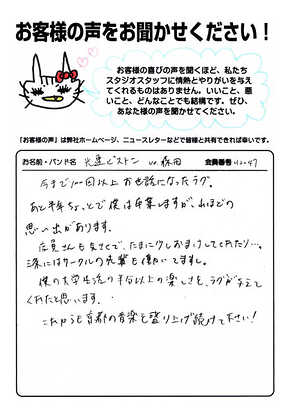 お客様の声をお聞かせください！
お客様の喜びの声を聞くほど、私たち
スタジオスタッフに情熱とやりがいを与え
てくれるものはありません。いいこと、悪
いこと、どんなことでも結構です。ぜひ、
あなた様の声をお聞かせください。
「お客様の声」は弊社ホームページ、ニュースレターなどで皆様と共有できれば幸いです。
お名前・バンド名 光速ピストン vo. 森田 会員番号 42-47
今まで100回以上お世話になったラグ。
あと半年ちょっとで僕は卒業しますが、山ほどの
思い出があります。
店員さんも気さくで、たまに少しおまけしてくれたり…。
深にはサークルの先輩も働いてますし。
僕の大学生活の半分以上の楽しさを、ラグが与えて
くれたと思います。
これからも京都の音楽を盛り上げ続けて下さい！